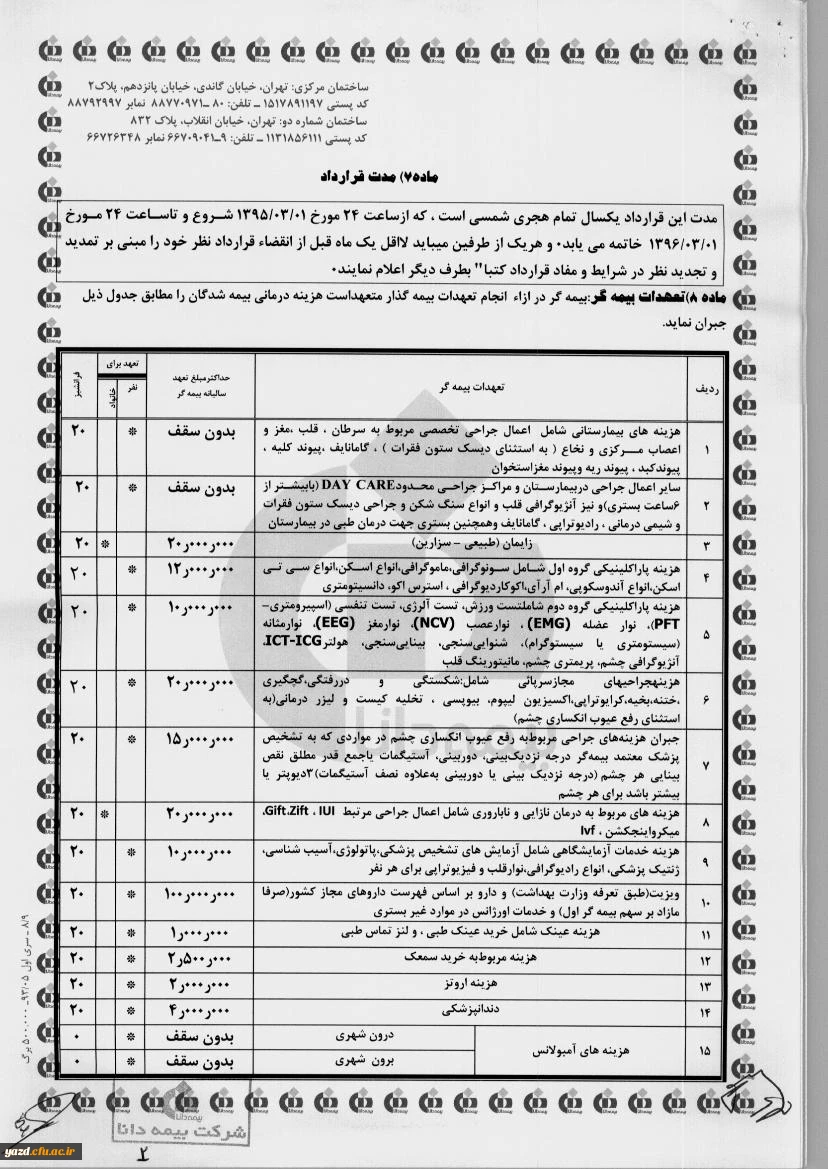 ساختمان مرکزی: تهران، خیابان گاندی، خیابان پانزدهم، پلاک۲
کد پستی ۱۵۱۷۸۹۱۱۹۷ ــ تلفن: ۸۰ ــ۸۸۷۷۰۹۷۱ نمابر ۸۸۷۹۲۹۹۷
ساختمان شماره دو: تهران، خیابان انقلاب، پلاک ۸۳۲
کد پستی ۱۱۳۱۸۵۶۱۱۱ ــ تلفن: ۹ــ۶۶۷۰۹۰۴۱ نمابر ۶۶۷۲۶۳۴۸
ماده۷) مدت قرارداد
مدت این قرارداد یکسال تمام هجری شمسی است ، که ازساعت ۲۴ مورخ ۱۳۹۵/۰۳/۰۱ شروع و تاساعت ۲۴ مورخ
۱۳۹۶/۰۳/۰۱ خاتمه می یابد۰ و هریک از طرفین میباید لااقل یک ماه قبل از انقضاء قرارداد نظر خود را مبنی بر تمدید
و تجدید نظر در شرایط و مفاد قرارداد کتبا" بطرف دیگر اعلام نمایند۰
ماده ۸)تعهدات بیمه گر:بیمه گر در ازاء انجام تعهدات بیمه گذار متعهداست هزینه درمانی بیمه شدگان را مطابق جدول ذیل
جبران نماید.
ردیف تعهدات بیمه گر حداکثرمبلغ تعهد سالیانه بیمه گر تعهد برای نفر خانواد فرانشیز
۱ هزینه های بیمارستانی شامل اعمال جراحی تخصصی مربوط به سرطان ، قلب ،مغز و بدون سقف * ۲۰
اعصاب مرکزی و نخاع ( به استثنای دیسک ستون فقرات ) ، گامانایف ،پیوند کلیه ،
پیوندکبد ، پیوند ریه وپیوند مغزاستخوان
۲ سایر اعمال جراحی دربیمارستان و مراکز جراحی محدودDAY CARE (بابیشتر از بدون سقف * ۲۰
۶ساعت بستری)و نیز آنژیوگرافی قلب و انواع سنگ شکن و جراحی دیسک ستون فقرات
و شیمی درمانی ، رادیوتراپی ، گامانایف وهمچنین بستری جهت درمان طبی در بیمارستان
۳ زایمان (طبیعی – سزارین) ۲۰ر۰۰۰ر۰۰۰ * ۲۰
۴ هزینه پاراکلینیکی گروه اول شامل سونوگرافی،ماموگرافی،انواع اسکن،انواع سی تی ۱۲ر۰۰۰ر۰۰۰ * ۲۰
اسکن،انواع آندوسکوپی، ام آرآی،اکوکاردیوگرافی ، استرس اکو، دانسیتومتری
۵ هزینه پاراکلینیکی گروه دوم شاملتست ورزش، تست آلرژی، تست تنفسی (اسپیرومتری– ۱۰ر۰۰۰ر۰۰۰ * ۲۰
PFT)، نوار عضله (EMG) ، نوارعصب (NCV)، نوارمغز (EEG)، نوارمثانه
(سیستومتری یا سیستوگرام)، شنوایی‌سنجی، بینایی‌سنجی، هولترICT-ICG،
آنژیوگرافی چشم، پریمتری چشم، مانیتورینگ قلب
۶ هزینهجراحیهای مجازسرپائی شامل:شکستگی و دررفتگی،گچگیری ۲۰ر۰۰۰ر۰۰۰ * ۲۰
،ختنه،بخیه،کرایوتراپی،اکسیزیون لیپوم، بیوپسی ، تخلیه کیست و لیزر درمانی(به
استثنای رفع عیوب انکساری چشم)
۷ جبران هزینه‌های جراحی مربوط‌به رفع عیوب انکساری چشم در مواردی که به تشخیص ۱۵ر۰۰۰ر۰۰۰ * ۲۰
پزشک معتمد بیمه‌گر درجه نزدیک‌بینی، دوربینی، آستیگمات یاجمع قدر مطلق نقص
بینایی هر چشم (درجه نزدیک بینی یا دوربینی به‌علاوه نصف آستیگمات)۳دیوپتر یا
بیشتر باشد برای هر چشم
۸ هزینه های مربوط به درمان نازایی و ناباروری شامل اعمال جراحی مرتبط Gift،Zift ، IUI، ۲۰ر۰۰۰ر۰۰۰ * ۲۰
میکرواینجکشن ، Ivf
۹ هزینه خدمات آزمایشگاهی شامل آزمایش های تشخیص پزشکی،پاتولوژی،آسیب شناسی، ۱۰ر۰۰۰ر۰۰۰ * ۲۰
ژنتیک پزشکی، انواع رادیوگرافی،نوارقلب و فیزیوتراپی برای هر نفر
۱۰ ویزیت(طبق تعرفه وزارت بهداشت) و دارو بر اساس فهرست داروهای مجاز کشور(صرفا ۱۰۰ر۰۰۰ر۰۰۰ * ۲۰
مازاد بر سهم بیمه گر اول) و خدمات اورژانس در موارد غیر بستری
۱۱ هزینه عینک شامل خرید عینک طبی ، و لنز تماس طبی ۱ر۰۰۰ر۰۰۰ * ۲۰
۱۲ هزینه مربوط‌به خرید سمعک ۲ر۵۰۰ر۰۰۰ * ۲۰
۱۳ هزینه اروتز ۲ر۰۰۰ر۰۰۰ * ۲۰
۱۴ دندانپزشکی ۴ر۰۰۰ر۰۰۰ * ۲۰
۱۵ هزینه های آمبولانس درون شهری بدون سقف * ۰
برون شهری بدون سقف * ۰
۸/۹ ــ سری اول ۹۳/۰۵ ــ ۵۰۰.۰۰۰ برگ
بیمه دانا
شرکت بیمه دانا
۲
yazd.cfu.ac.ir